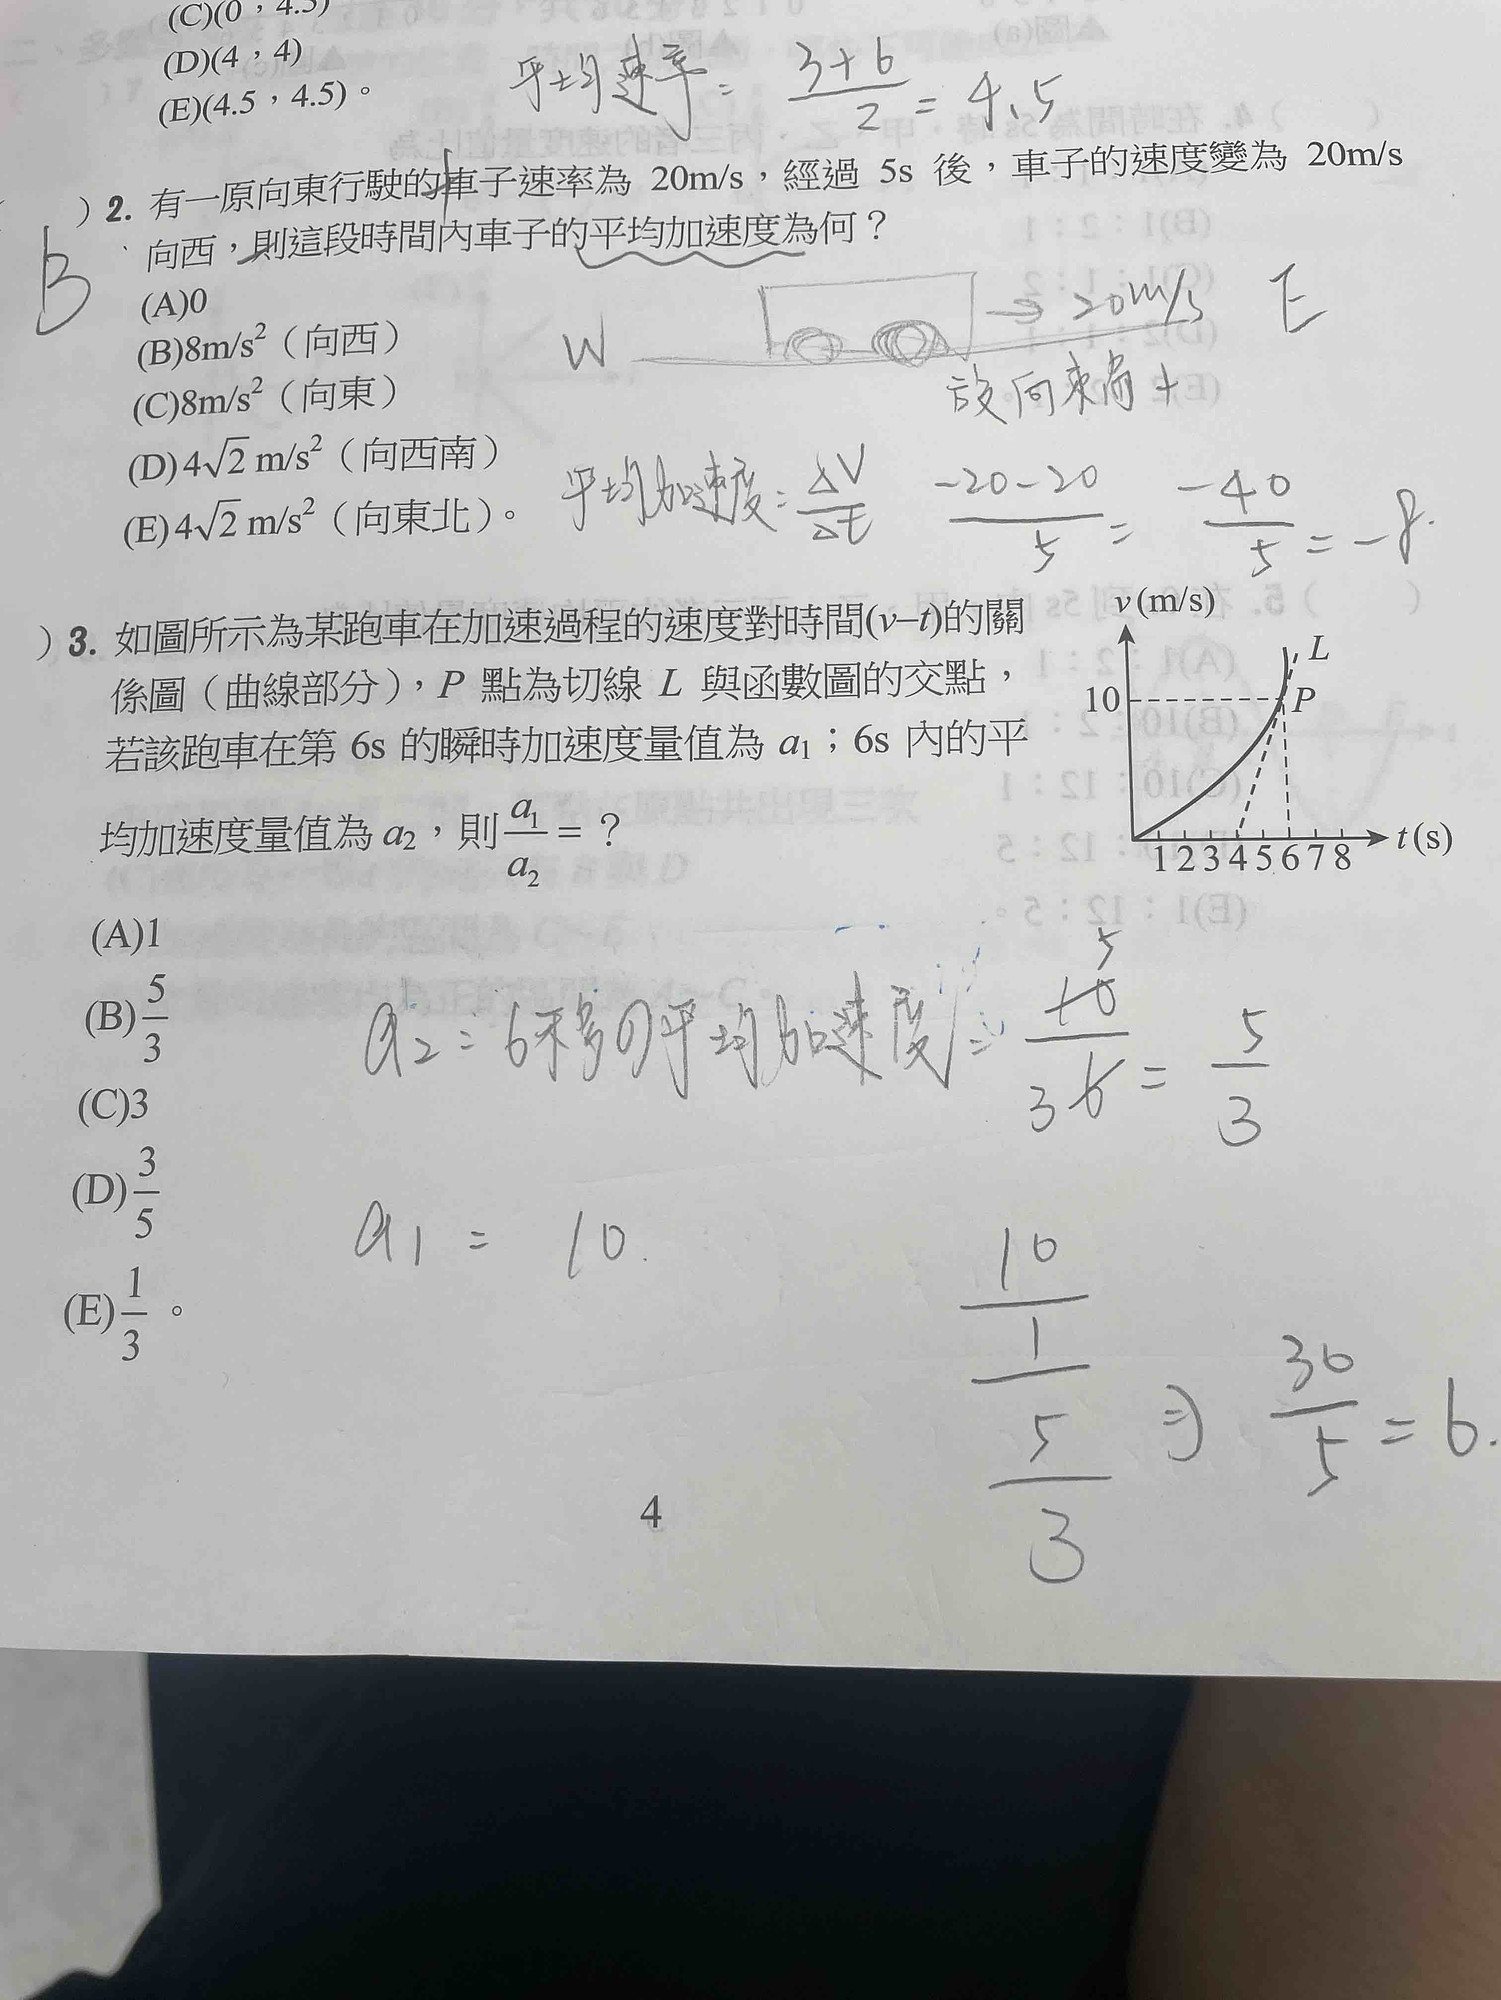 (C)(0，4.5)
(D)(4，4)
(E)(4.5，4.5)。
平均速率 = 3+6/2 = 4.5
)2. 有一原向東行駛的車子速率為 20m/s，經過 5s 後，車子的速度變為 20m/s
向西，則這段時間內車子的平均加速度為何？
B
(A)0
(B)8m/s²（向西）
(C)8m/s²（向東）
(D)4√2 m/s²（向西南）
(E)4√2 m/s²（向東北）。
W
→ 20m/s
E
設向東為+
平均加速度 = ΔV/Δt
-20-20/5 = -40/5 = -8.
)3. 如圖所示為某跑車在加速過程的速度對時間(v–t)的關
係圖（曲線部分），P 點為切線 L 與函數圖的交點，
若該跑車在第 6s 的瞬時加速度量值為 a₁；6s 內的平
均加速度量值為 a₂，則 a₁/a₂ = ？
v(m/s)
L
10
P
1 2 3 4 5 6 7 8
t(s)
(A)1
(B)5/3
(C)3
(D)3/5
(E)1/3。
a₂ = 6秒的平均加速度 = 10/6 = 5/3
5
3
a₁ = 10.
10/1
5/3
⇒ 30/5 = 6.
4